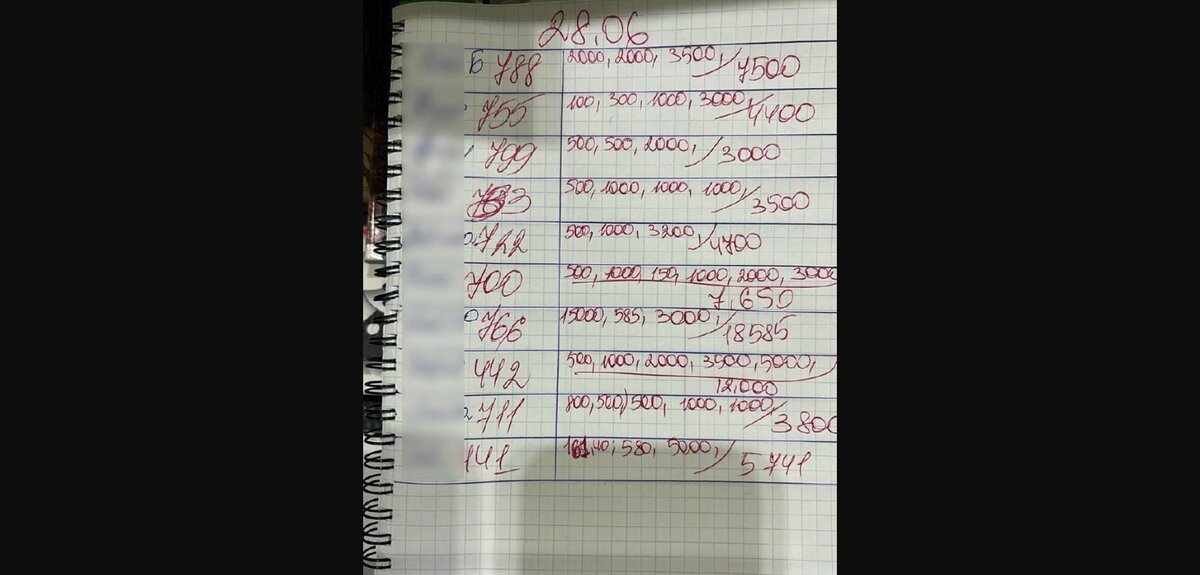 28.06
Б 788 2000, 2000, 3500, / 7500
755 100, 300, 1000, 3000, / 4400
799 500, 500, 2000, / 3000
783 500, 1000, 1000, 1000, / 3500
722 500, 1000, 3200, / 4700
700 500, 1000, 150, 1000, 2000, 3000
7.650
766 15000, 585, 3000, / 18585
442 500, 1000, 2000, 3500, 5000, /
12.000
711 800, 500, 500, 1000, 1000, / 3800
141 161, 40, 580, 5000, / 5741